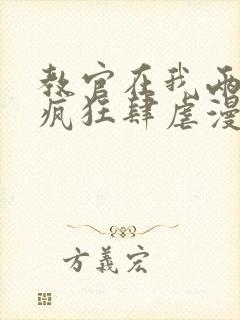 教官在我两
疯狂肆虐漫
方義宏